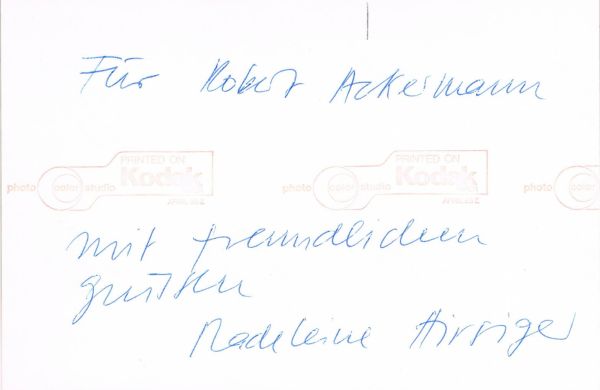 Für Robert Ackermann
PRINTED ON
Kodak
photo color studio
PRINTED ON
Kodak
photo color studio
photo color
mit freundlichen
grüssen
Madeleine Hirsiger